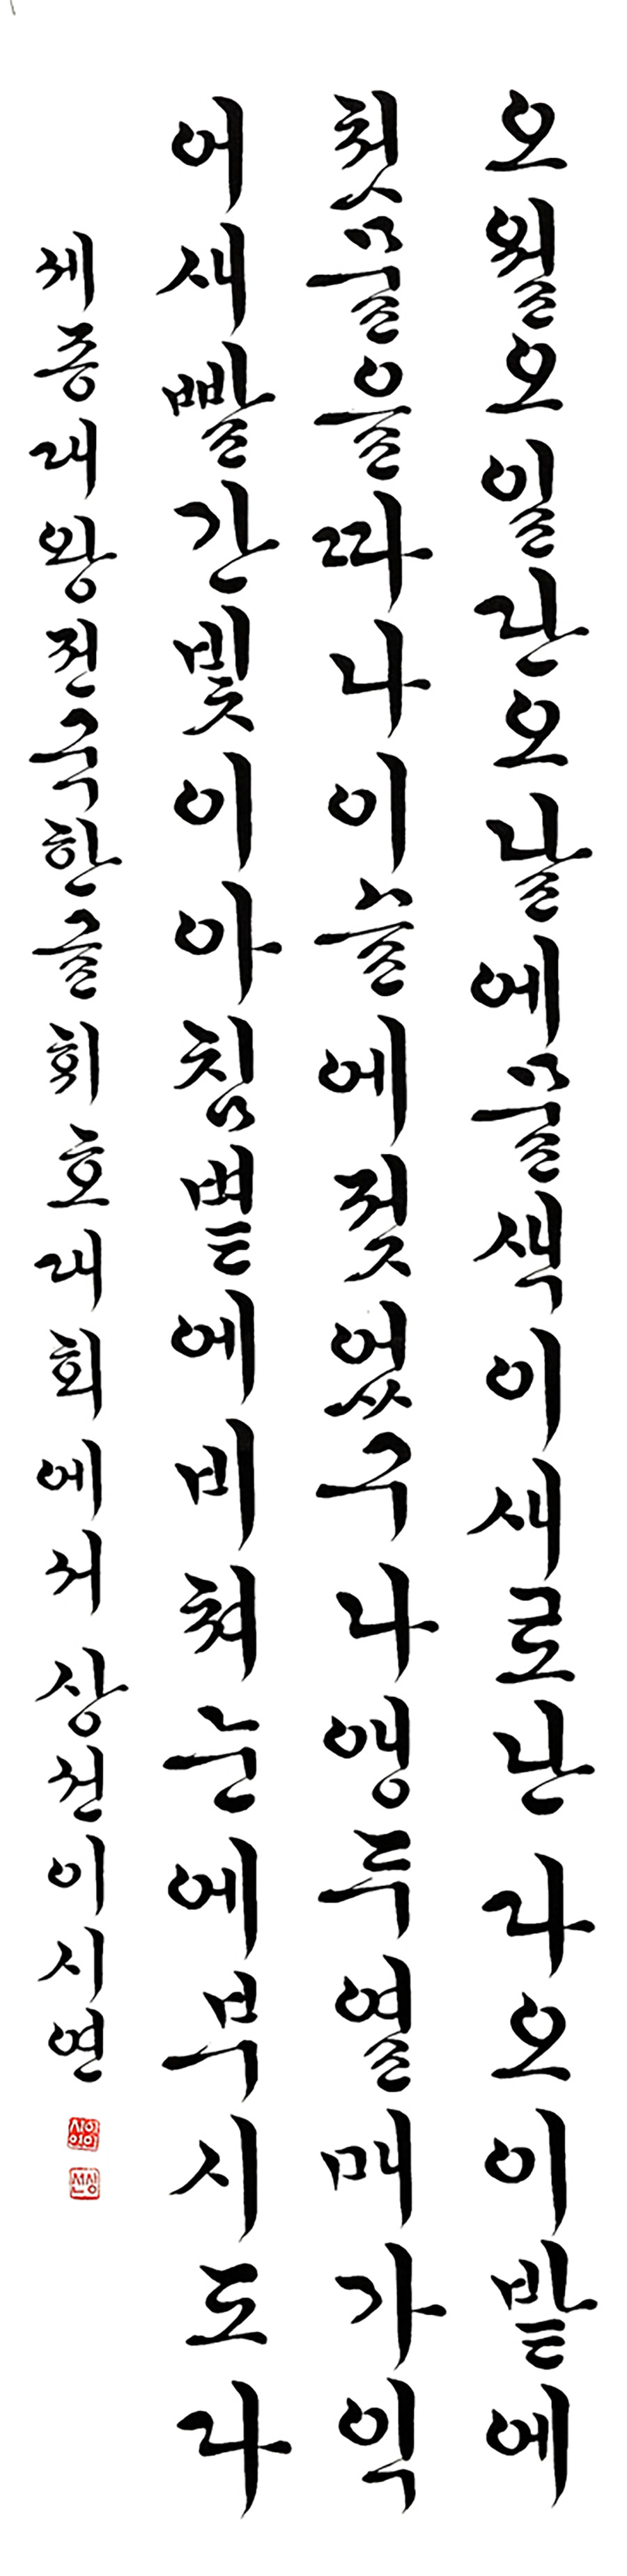 오월오일단오날에믈색이새로난다오이밭에
첫믈을따나이슬에젖었구나앵두열매가익
어새빨간빛이아침볕에비쳐눈에부시도다
세종대왕전국한글휘호대회에서 상선이시연